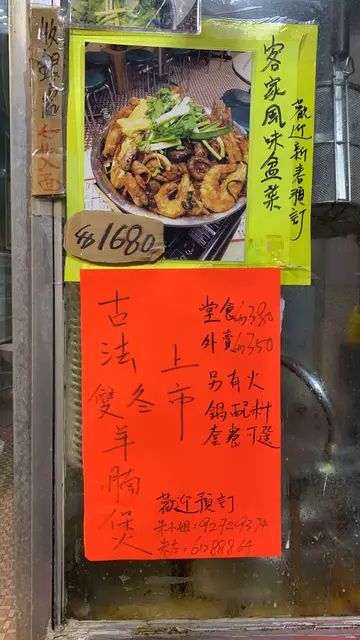 客家風味盆菜
歡迎新春預訂
$1680
古法
雙冬
羊腩煲
上市
堂食$380
外賣$350
另有火
鍋配料
套餐可選
歡迎預訂
朱小姐:92929374